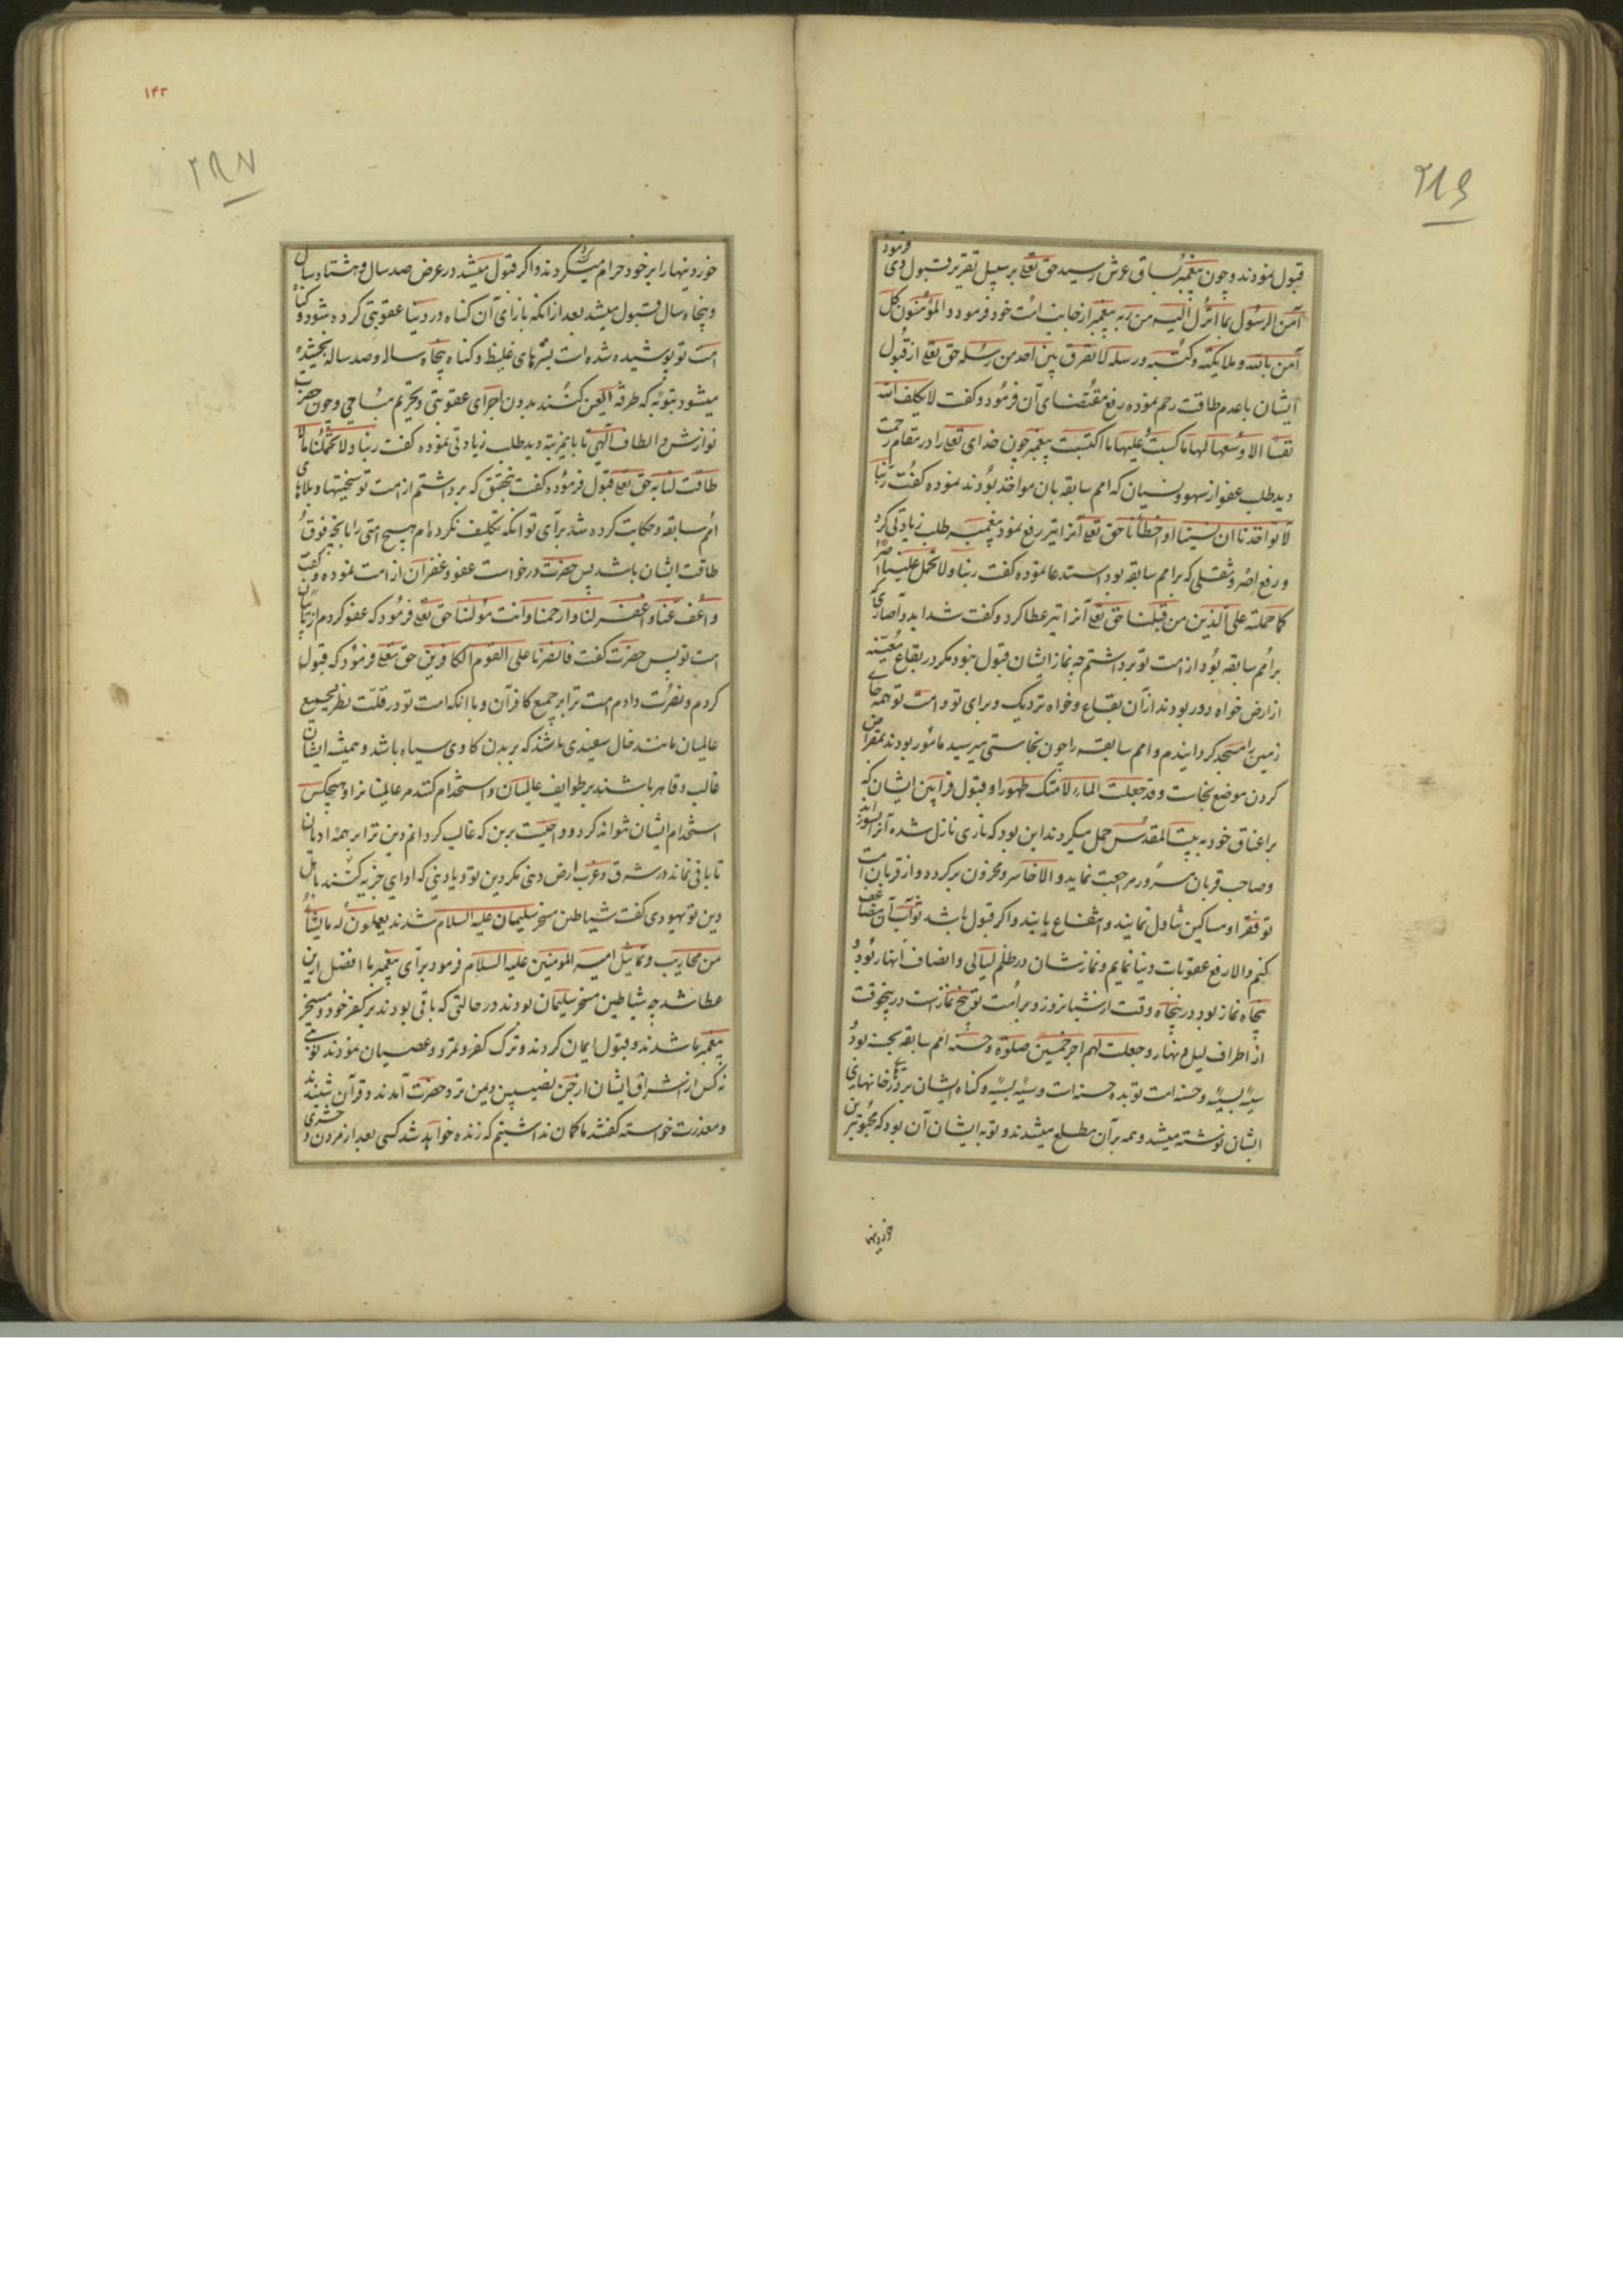 ۲۸۶
قبول نمودند و چون پیغمبر بساق عرش رسید حق تعلی بر سبیل تقریر قبول وی فرمود
آمن الرسول بما انزل الیه من ربه پیغمبر از جانب امت خود فرمود و المؤمنون کل
آمن بالله و ملایکته و کتبه و رسله لا نفرق بین احد من رسله حق تعلی از قبول
ایشان با عدم طاقت رحم نموده رفع مقتضای آن فرمود و گفت لا یکلف الله
نفسا الا وسعها لها ما کسبت و علیها ما اکتسبت پیغمبر چون خدای تعلی را در مقام رحمت
دید طلب عفو از سهو و نسیان که امم سابقه بان مواخذ بودند نموده گفت ربنا
لا تواخذنا ان نسینا او اخطأنا حق تعلی آنرا نیز رفع نمود پیغمبر طلب زیادتی کرد
و رفع اصر و ثقلی که بر امم سابقه بود استدعا نموده گفت ربنا و لا تحمل علینا اصرا
کما حملته علی الذین من قبلنا حق تعلی آنرا نیز عطا کرد و گفت شداید و آصاری که
بر امم سابقه بود از امت تو برداشتم چه نماز ایشان قبول نبود مگر در بقاع معینه
از ارض خواه دور بودند از آن بقاع و خواه نزدیک و برای تو و امت تو همه جای
زمین را مسجد گردانیدم و امم سابقه را چون نجاستی میرسید مأمور بودند بمقراض
کردن موضع نجاست و قد جعلت الماء لامتک طهورا و قبول قرابین ایشان که
بر اعناق خود به بیت المقدس حمل میکردند این بود که ناری نازل شده آنرا بسوزاند
و صاحب قربان مسرور مراجعت نماید و الا خاسر و محزون برگردد و از قربان امت
تو فقرا و مساکین تناول نمایند و انتفاع یابند و اگر قبول باشد ثواب آن مضاعف
کنم و الا رفع عقوبات دنیا نمایم و نمازشان در ظلم لیالی و انصاف انهار بود و
پنجاه نماز بود در پنجاه وقت از شبانروز و بر امت تو پنج نماز است در پنج وقت
از اطراف لیل و نهار و جعلت لهم اجر خمسین صلوة و حسنه امم سابقه بحسنه بود و
سیئه بسیئه و حسنه امت تو بده حسنات و سیئه بسیئه و گناه ایشان بر درخانهای
ایشان نوشته میشد و همه بر آن مطلع میشدند و توبه ایشان آن بود که محبوبترین
خوردنیها
۱۴۳
۲۸۷
خوردنیها را بر خود حرام میکردند و اگر قبول میشد در عرض صد سال و هشتاد سال
و پنجاه سال قبول میشد بعد از انکه بازای آن گناه در دنیا عقوبتی کرده شود و گناه
امت تو پوشیده شده است بسترهای غلیظ و گناه پنجاه ساله و صد ساله بخشیده
میشود بتوبه که طرفة العین کنند بدون اجرای عقوبتی و تحریم مباحی و چون حضرت
نوازش و الطاف الهی تا باینمرتبه دید طلب زیادتی نموده گفت ربنا و لا تحملنا ما لا
طاقت لنا به حق تعلی قبول فرموده گفت بتحقیق که برداشتم از امت تو سختیها و بلاهای
امم سابقه و حکایت کرده شد برای تو انکه تکلیف نکرده ام هیچ امتی را بانچه فوق
طاقت ایشان باشد پس حضرت درخواست عفو و غفران از امت نموده و گفت
و اعف عنا و اغفر لنا و ارحمنا و انت مولینا حق تعلی فرمود که عفو کردم از تایبان
امت تو پس حضرت گفت فانصرنا علی القوم الکافرین حق تعلی فرمود که قبول
کردم و نصرت دادم امت ترا بر جمیع کافران و با انکه امت تو در قلت نظر بجمیع
عالمیان مانند خال سفیدی باشند که بر بدن گاوی سیاه باشد و همیشه ایشان
غالب و قاهر باشند بر طوایف عالمیان و استخدام کنند مر عالمیانرا و هیچکس
استخدام ایشان نتواند کرد و واجبست برمن که غالب گردانم دین ترا بر همه ادیان
تا باقی نماند در شرق و غرب ارض دینی مگر دین تو و یا دینی که ادای جزیه کنند باهل
دین تو یهودی گفت شیاطین مسخر سلیمان علیه السلام شدند یعملون له ما یشاء
من محاریب و تماثیل امیر المومنین علیه السلام فرمود برای پیغمبر ما افضل ازین
عطا شد چه شیاطین مسخر سلیمان بودند در حالتی که باقی بودند بر کفر خود و مسخر
پیغمبر ما شدند و قبول ایمان کردند و ترک کفر و تمرد و عصیان نمودند
نه کس از اشراف ایشان از جن نصیبین و یمن نزد حضرت آمدند و قرآن شنیدند
و معذرت خواسته گفتند ما گمان نداشتیم که زنده خواهد شد کسی بعد از مردن و حشری